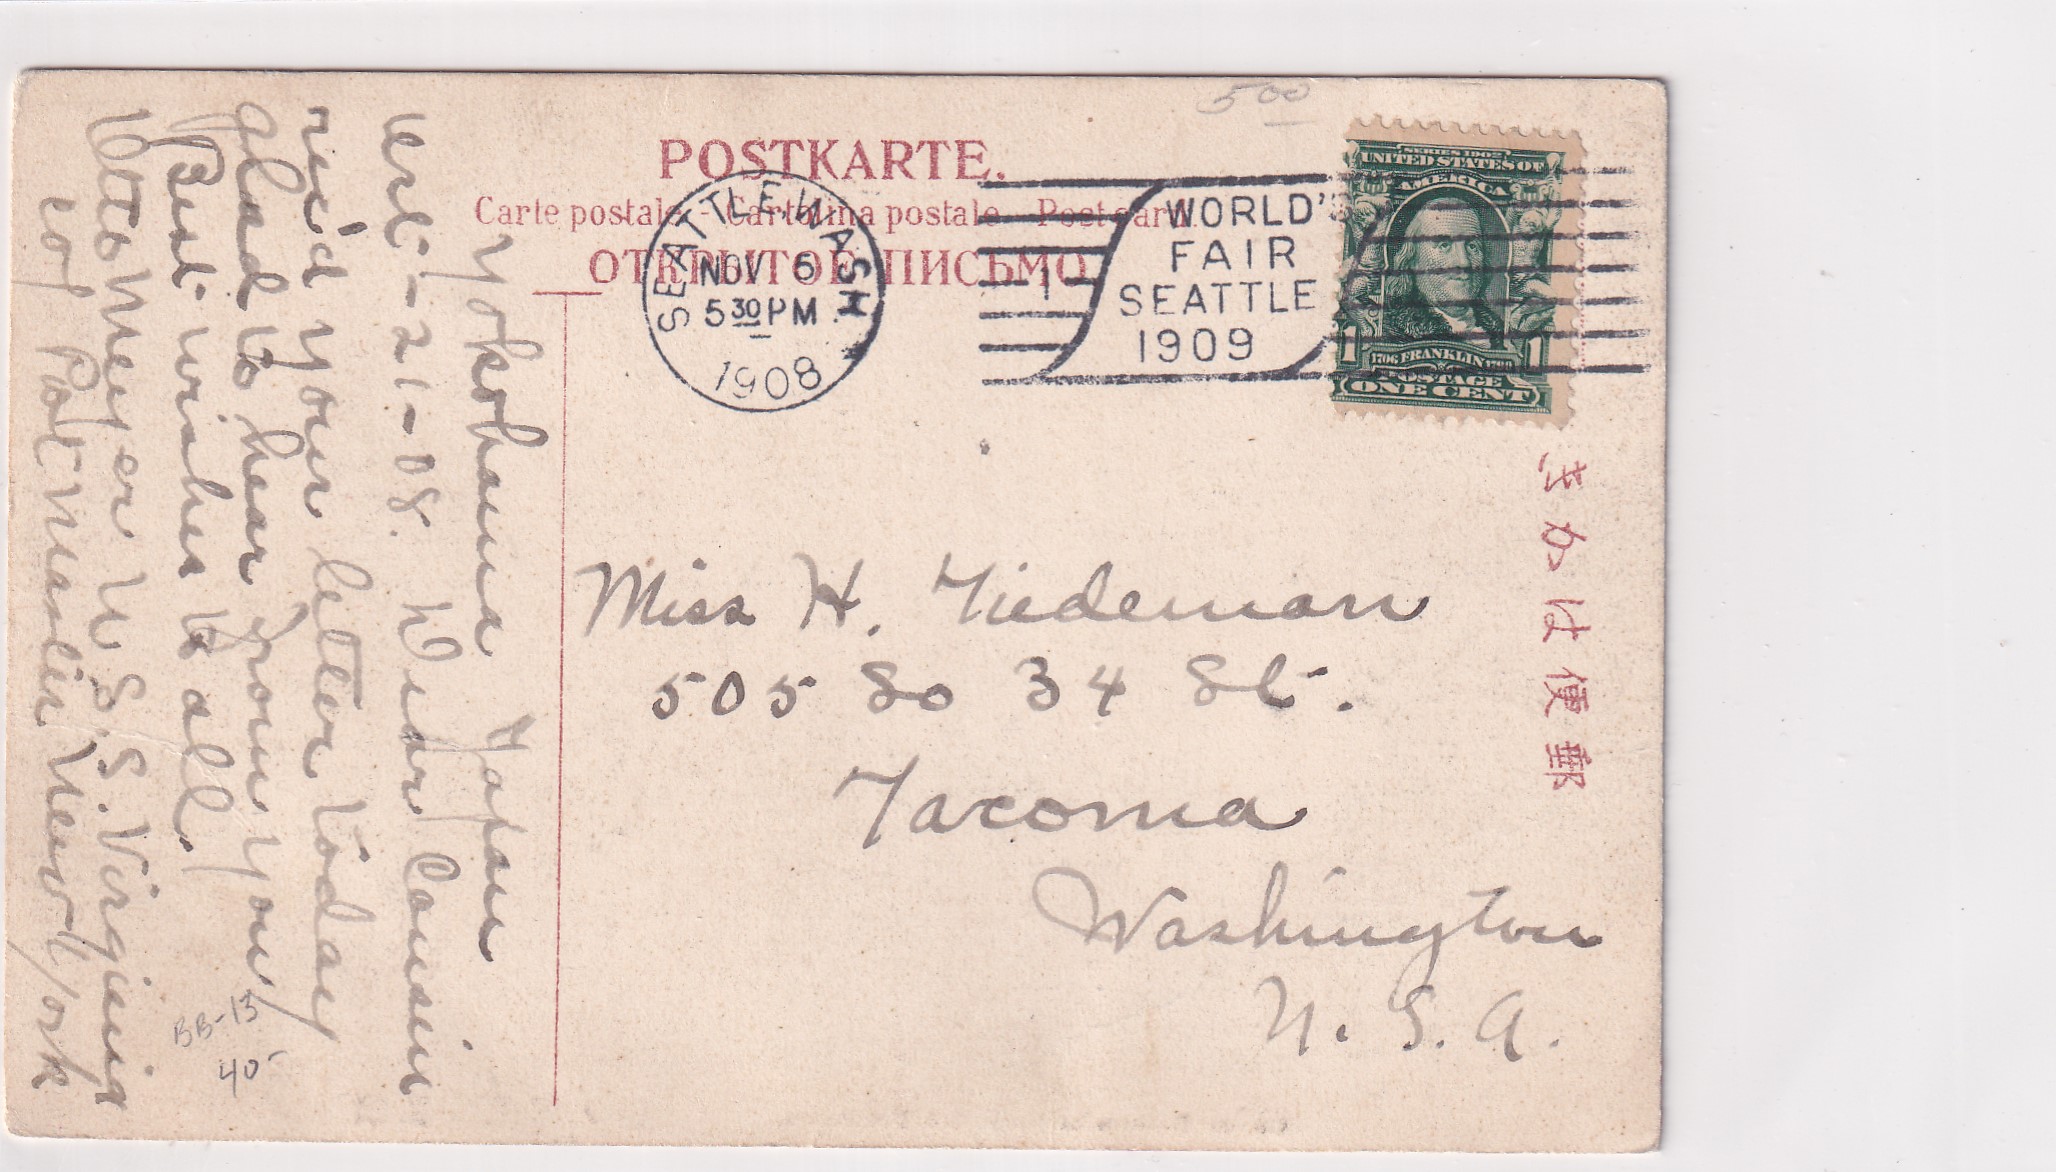 5 00
POSTKARTE.
Carte postale - Cartolina postale - Post card
ОТКРЫТОЕ ПИСЬМО
SEATTLE, WASH.
NOV 5
5 30 PM
1908
1
WORLD'S
FAIR
SEATTLE
1909
SERIES 1902
UNITED STATES OF
AMERICA
1706 FRANKLIN 1790
1 1
POSTAGE
ONE CENT
郵便はがき
Yokohama Japan
Oct - 21 - 08. Dear Cousin
rec'd your letter today
glad to hear from you
Best wishes to all.
Otto Meyer U.S.S. Virginia
c/o Postmaster New York
BB-13
40
Miss H. Tiedeman
505 So 34 St.
Tacoma
Washington
U. S. A.